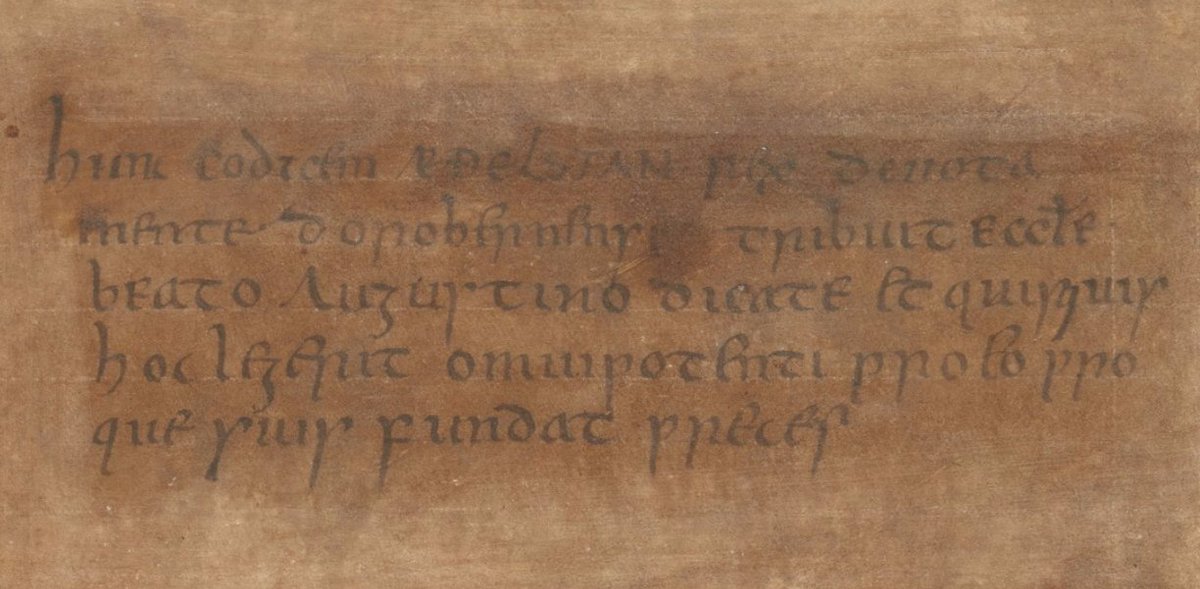 Hunc codicem ÆÐELSTAN rex deuota
mente dorobernensi tribuit eccle
beato Augustino dicate et quisquis
hoc legerit omnipotenti pro eo pro
que suis fundat preces